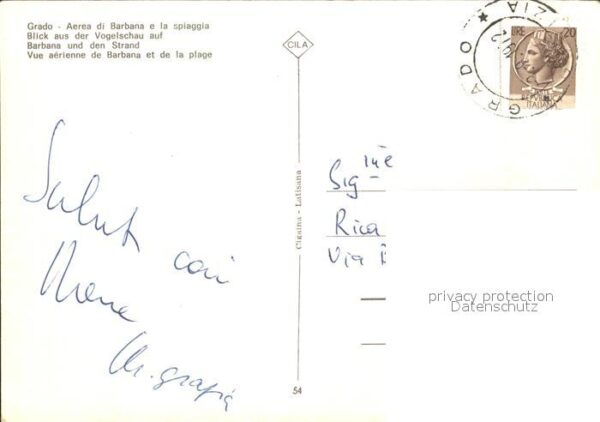 Grado - Aerea di Barbana e la spiaggia
Blick aus der Vogelschau auf
Barbana und den Strand
Vue aérienne de Barbana et de la plage
CILA
GRADO
LIRE 20
REPUBBLICA
ITALIANA
Cigaina - Latisana
Saluti cari
M.grazia
Sig.ine
Rica
Via
54
privacy protection
Datenschutz